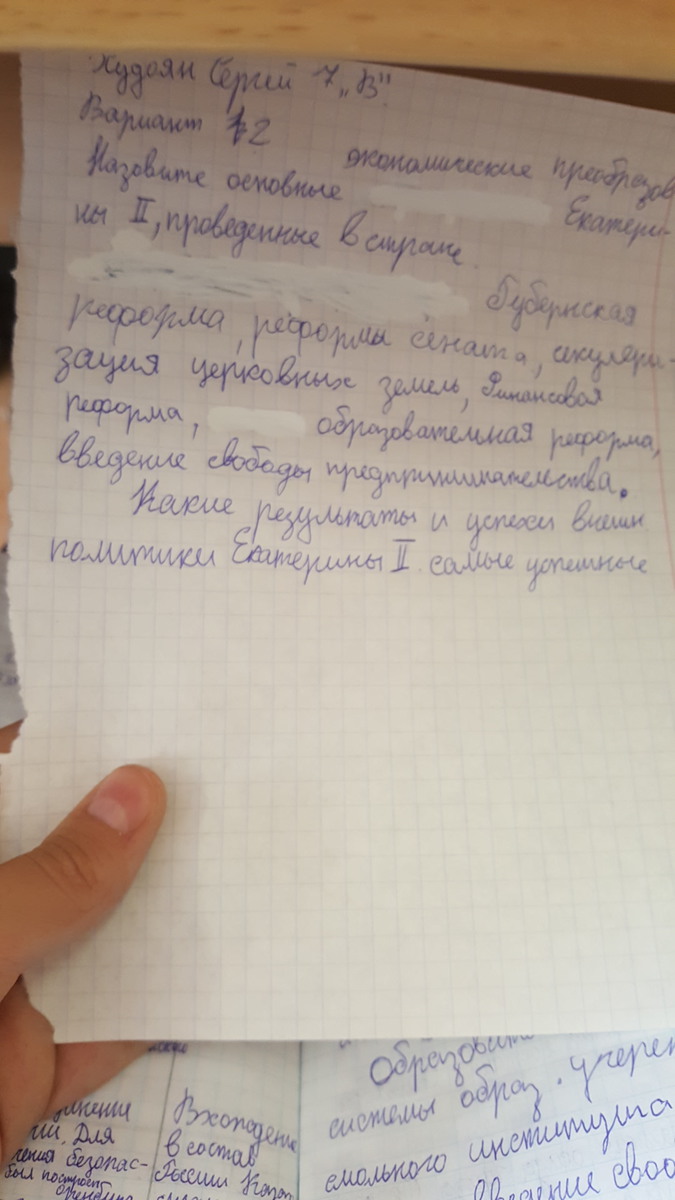 Худоян Сергей 7 „В"
Вариант 12
Назовите основные экономические преобразов
Екатери-
ны II, проведенные в стране.
Губернская
реформа, реформы сената, секуляри-
зация церковных земель, Финансовая
реформа, образовательная реформа,
введение свободы предпринимательства.
Какие результаты и успехи внешн
политики Екатерины II самые успешные
Вхождение
в состав
России
Для
безопас-
был
системы образ. учереж
смольного института